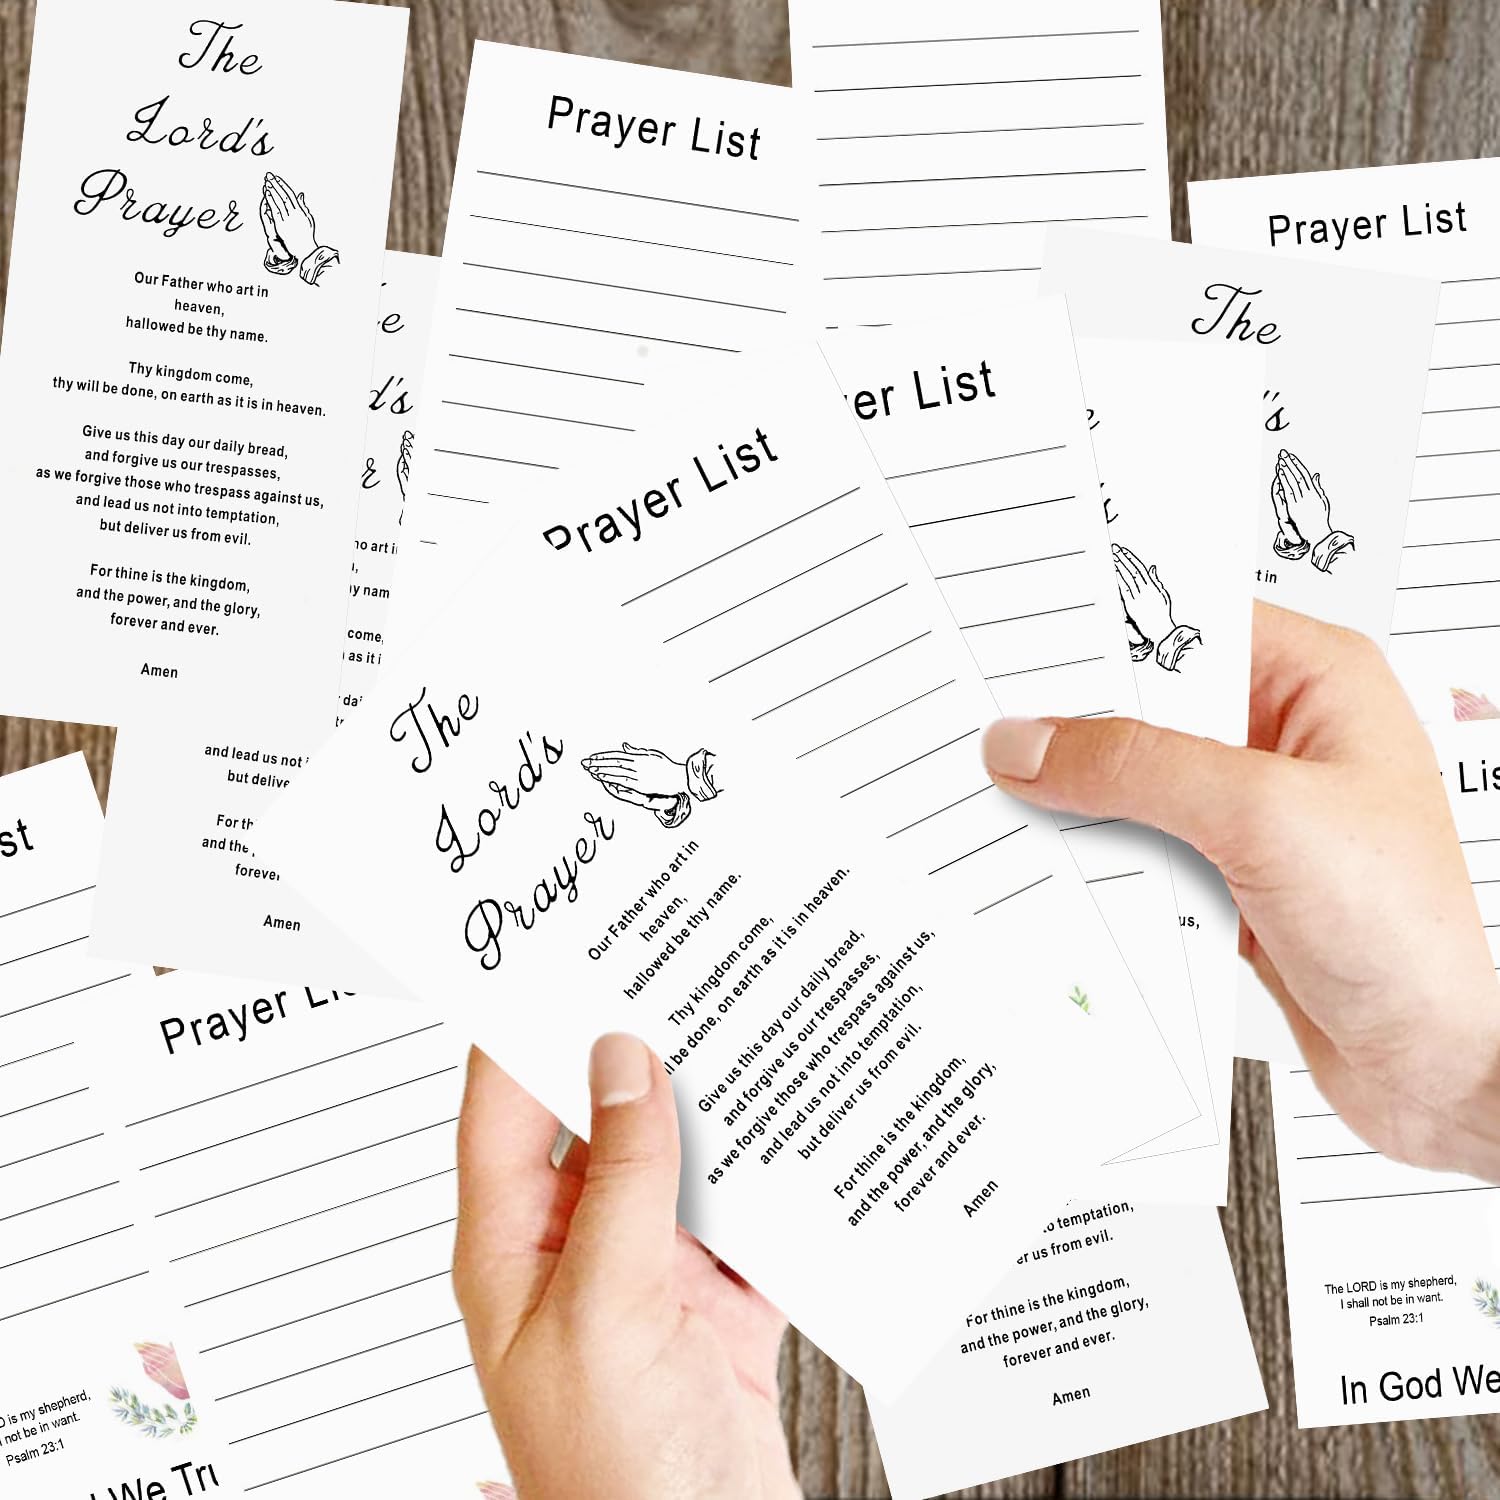 The
Lord's
Prayer
Our Father who art in
heaven,
hallowed be thy name.
Thy kingdom come,
thy will be done, on earth as it is in heaven.
Give us this day our daily bread,
and forgive us our trespasses,
as we forgive those who trespass against us,
and lead us not into temptation,
but deliver us from evil.
For thine is the kingdom,
and the power, and the glory,
forever and ever.
Amen
Prayer List
Prayer List
The
art in
and lead us not
but
and the
Amen
Prayer List
List
The
Lord's
Prayer
Our Father who art in
heaven,
hallowed be thy name.
Thy kingdom come,
be done, on earth as it is in heaven.
Give us this day our daily bread,
and forgive us our trespasses,
as we forgive those who trespass against us,
and lead us not into temptation,
but deliver us from evil.
For thine is the kingdom,
and the power, and the glory,
forever and ever.
Amen
us,
Prayer
is my shepherd,
not be in want.
Psalm 23:1
We
temptation,
us from evil.
For thine is the kingdom,
and the power, and the glory,
forever and ever.
Amen
The LORD is my shepherd,
I shall not be in want.
Psalm 23:1
In God We